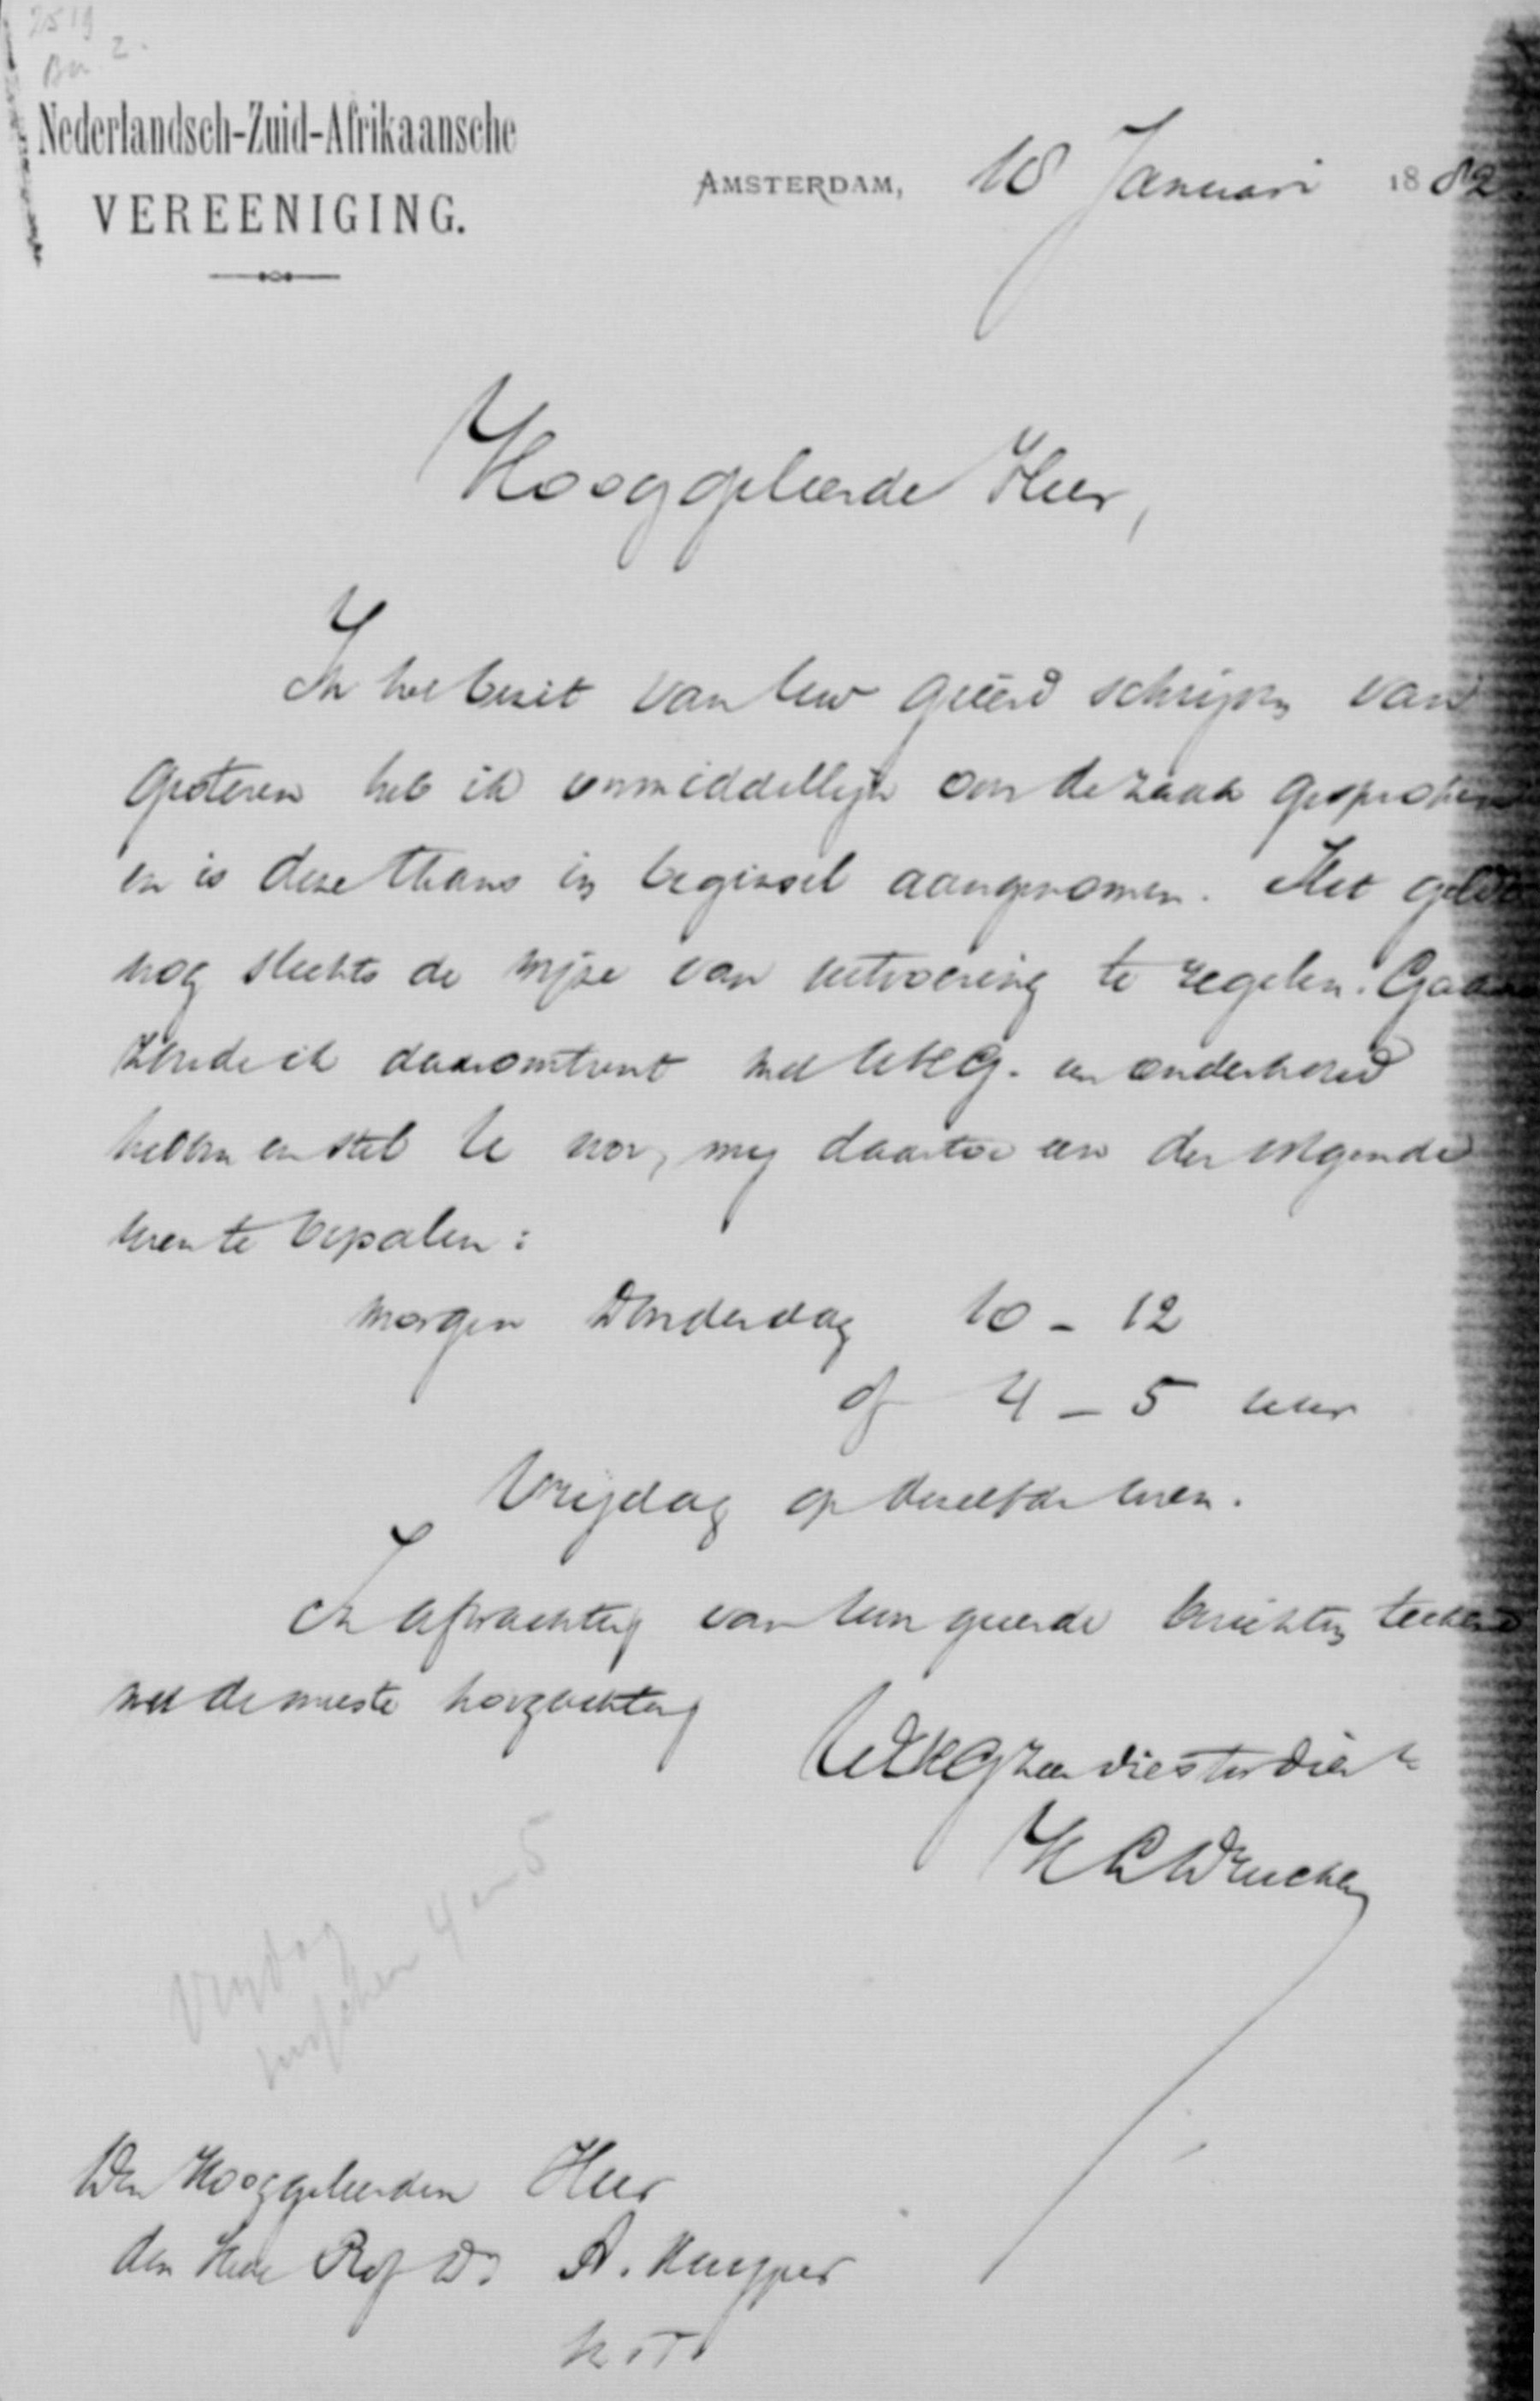 2519
Bu. 2.
Nederlandsch-Zuid-Afrikaansche
VEREENIGING.
AMSTERDAM, 18 Januari 1882
Hooggeleerde Heer,
In het bezit van Uw geëerd schrijven van
gisteren heb ik onmiddellijk over de zaak gesproken
en is deze thans in beginsel aangenomen. Het geldt
nog slechts de wijze van uitvoering te regelen. Gaarne
zoude ik daaromtrent met UHG. een onderhoud
hebben en stel U voor, mij daartoe een der volgende
uren te bepalen:
morgen Donderdag 10 - 12
of 4 - 5 uur
Vrijdag op dezelfde uren.
In afwachting van Uwe geëerde berichten, teeken
met de meeste hoogachting
UEHG zeer
Vrijdag
tusschen 4 en 5
Den Hooggeleerden Heer
den Heer Prof Dr A. Kuyper